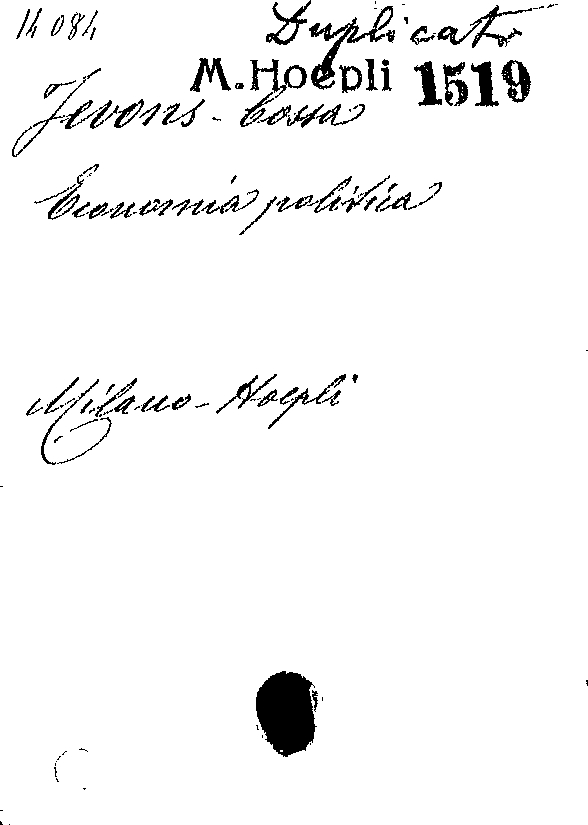 14 084
Duplicato
M. Hoepli 1519
Jevons - Cossa
Economia politica
Milano - Hoepli